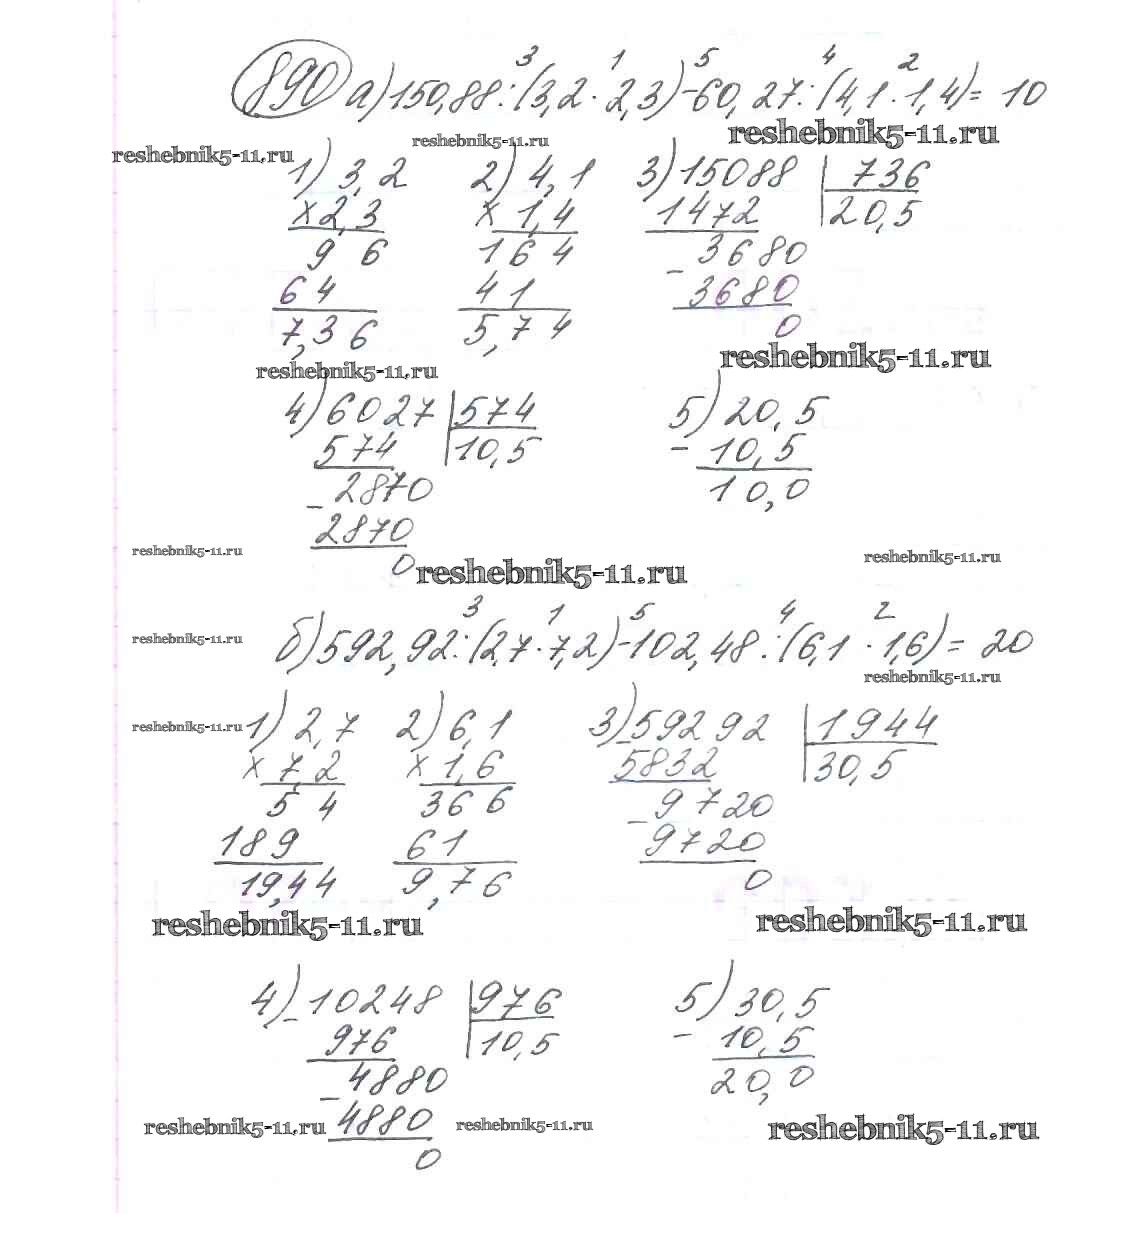 890 а) 150,88 : (3,2 · 2,3) - 60,27 : (4,1 · 1,4) = 10
3 1 5 4 2
reshebnik5-11.ru reshebnik5-11.ru reshebnik5-11.ru
1) 3,2 2) 4,1 3) 15088 | 736
× 2,3 × 1,4 1472 20,5
9 6 1 6 4 - 3680
6 4 4 1 3680
7,3 6 5,7 4 0
reshebnik5-11.ru reshebnik5-11.ru
4) 6027 | 574 5) 20,5
574 10,5 - 10,5
- 2870 10,0
2870
0
reshebnik5-11.ru reshebnik5-11.ru reshebnik5-11.ru
3 1 5 4 2
б) 592,92 : (2,7 · 7,2) - 102,48 : (6,1 · 1,6) = 20
reshebnik5-11.ru reshebnik5-11.ru
reshebnik5-11.ru
1) 2,7 2) 6,1 3) - 59292 | 1944
× 7,2 × 1,6 5832 30,5
5 4 36 6 - 9720
189 61 9720
19,44 9,76 0
reshebnik5-11.ru reshebnik5-11.ru
4) - 10248 | 976 5) 30,5
976 10,5 - 10,5
- 4880 20,0
4880
0
reshebnik5-11.ru reshebnik5-11.ru reshebnik5-11.ru